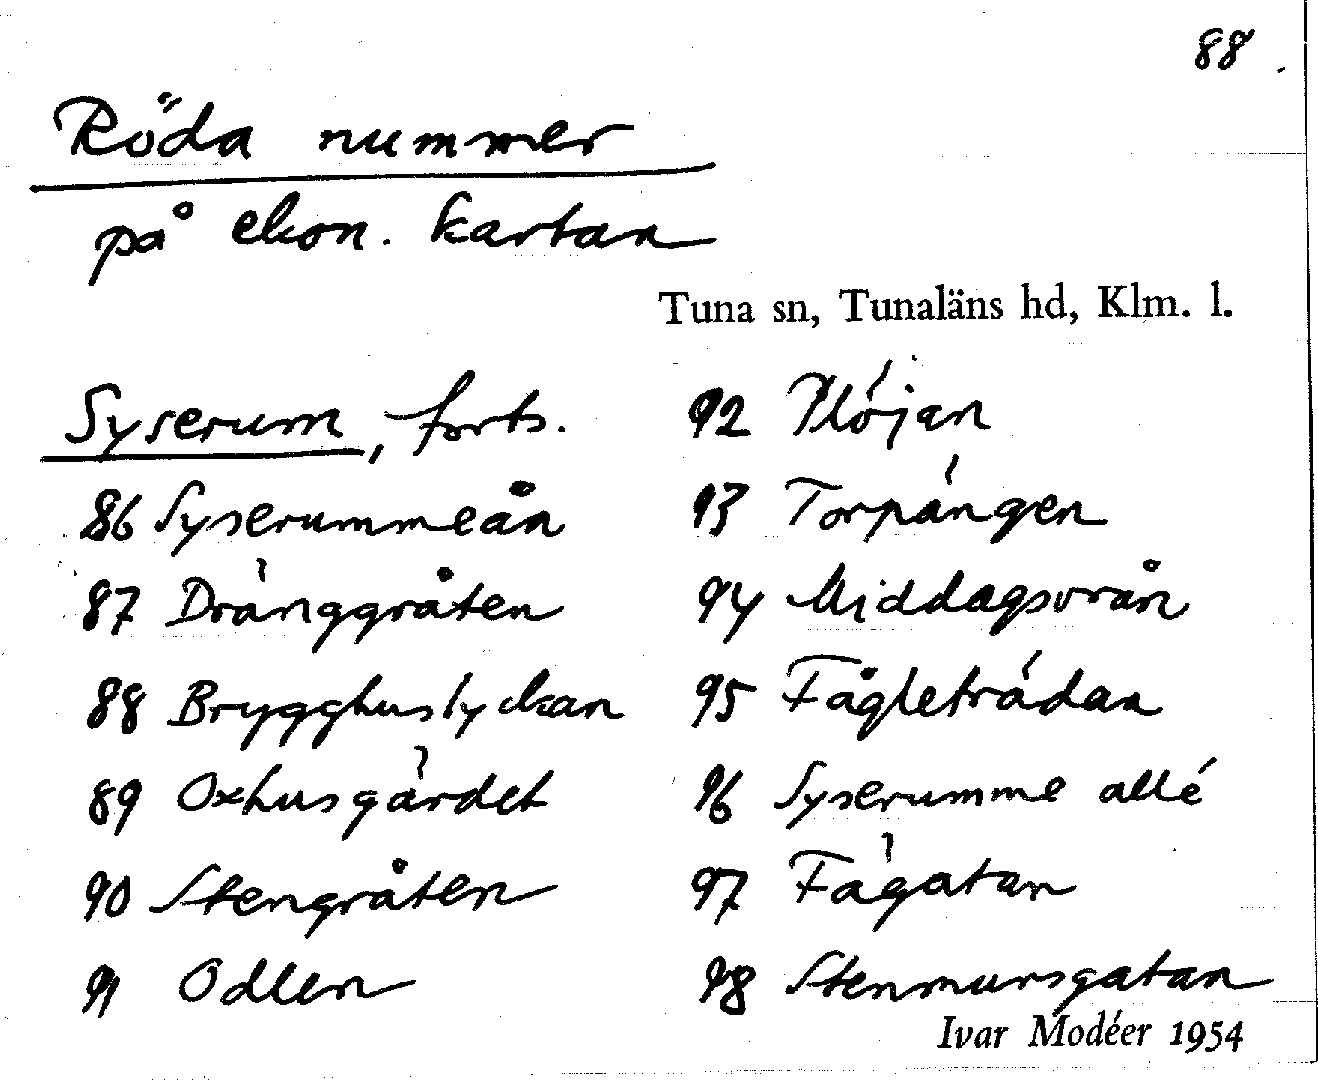 88.
Röda nummer
på ekon. kartan
Tuna sn, Tunaläns hd, Klm. l.
Syserum, forts.
86 Syserummeån
87 Dränggråten
88 Brygghuslyckan
89 Oxhusgärdet
90 Stengråten
91 Odlen
92 Plöjan
93 Torpängen
94 Middagsvrån
95 Fågleträdan
96 Syserumme allé
97 Fägatan
98 Stenmursgatan
Ivar Modéer 1954